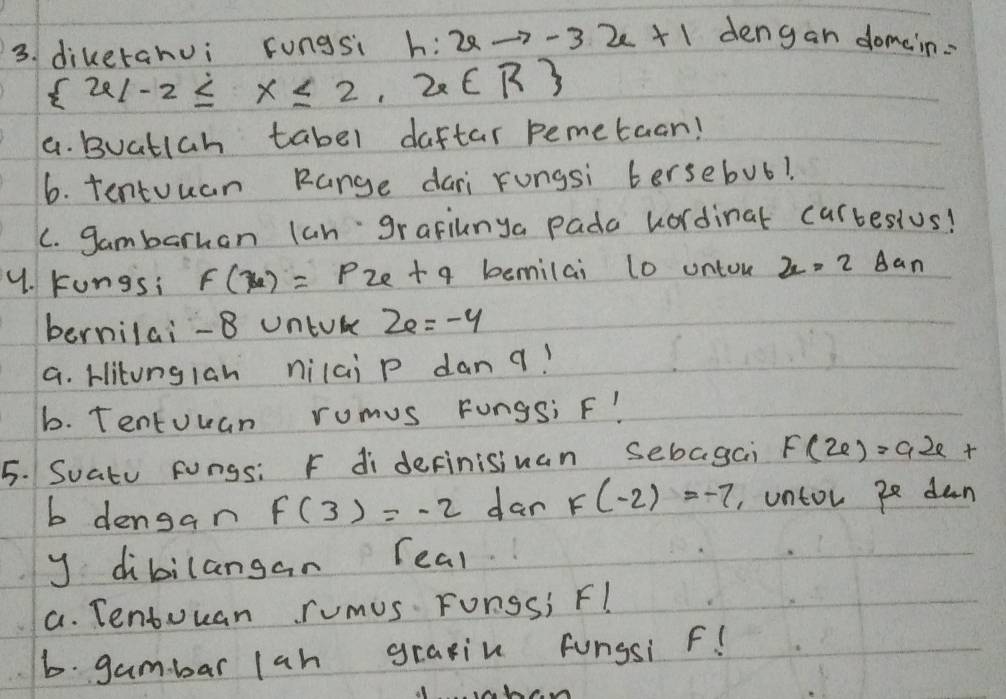 3. diketahui fungsi h: x → -3 x + 1 dengan domain =
{ x / -2 ≤ x ≤ 2, x ∈ R }
a. Buatlah tabel daftar pemetaan!
b. tentukan Range dari fungsi tersebut!
c. gambarkan lah grafiknya pada kordinat cartesius!
4. Fungsi F(x) = Px + q bernilai 10 untuk x = 2 dan
bernilai -8 untuk x = -4
a. Hitunglah nilai p dan q!
b. Tentukan rumus Fungsi F!
5. Suatu fungsi F di definisikan sebagai F(x) = ax +
b dengan f(3) = -2 dan F(-2) = -7, untuk x dan
y dibilangan real.
a. Tentukan rumus Fungsi F!
b. gambar lah grafik fungsi F!